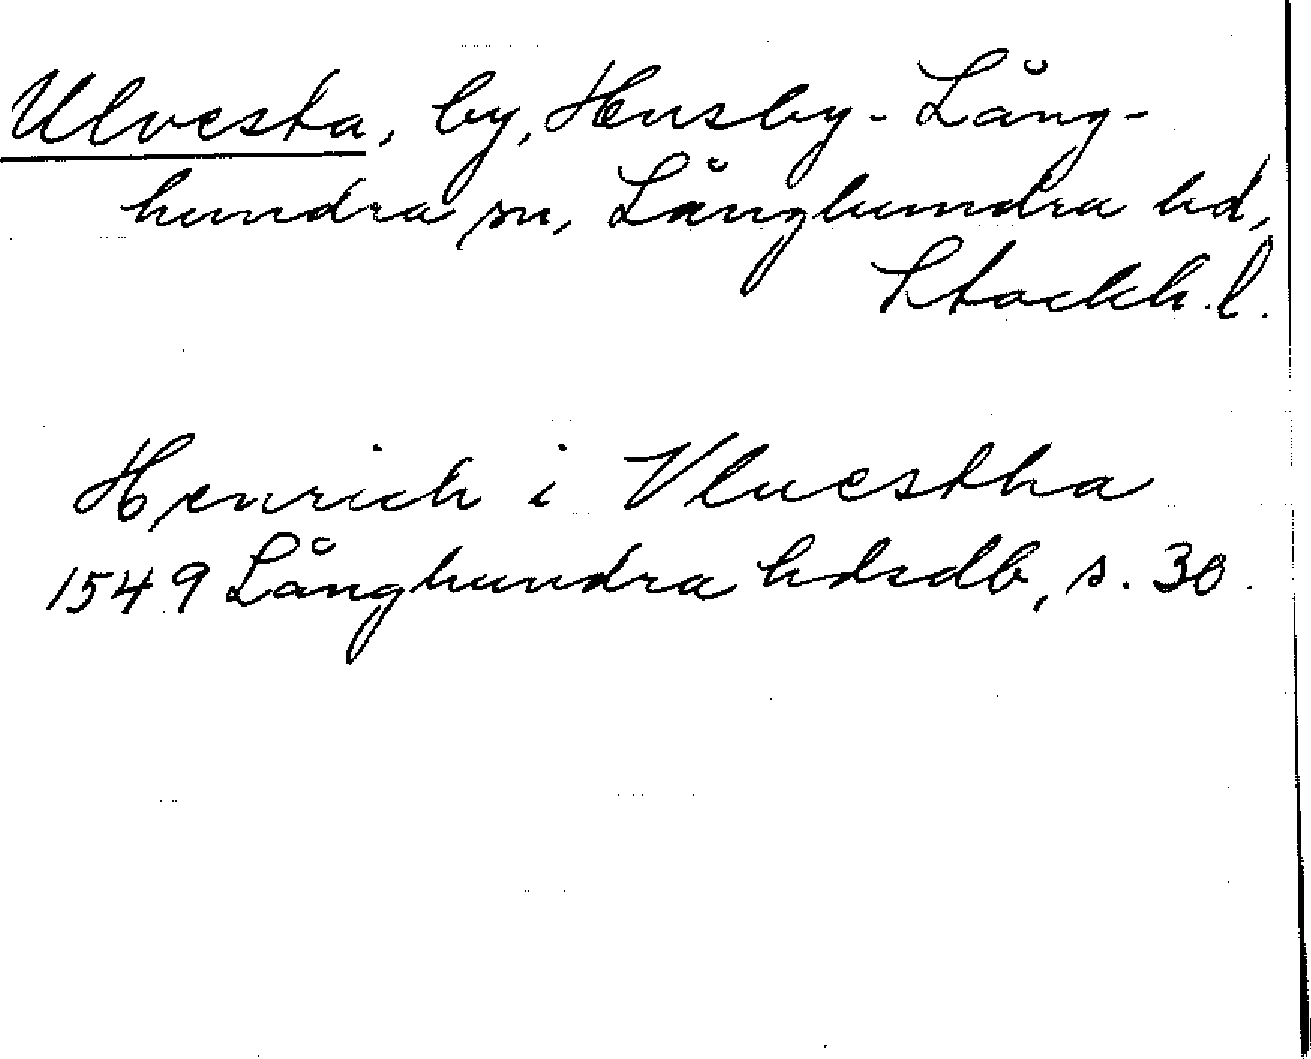 Ulvesta, by, Husby-Lång-
hundra sn, Långhundra hd,
Stockh.l.
Henrich i Vluestha
1549 Långhundra hdsdb, s. 30.